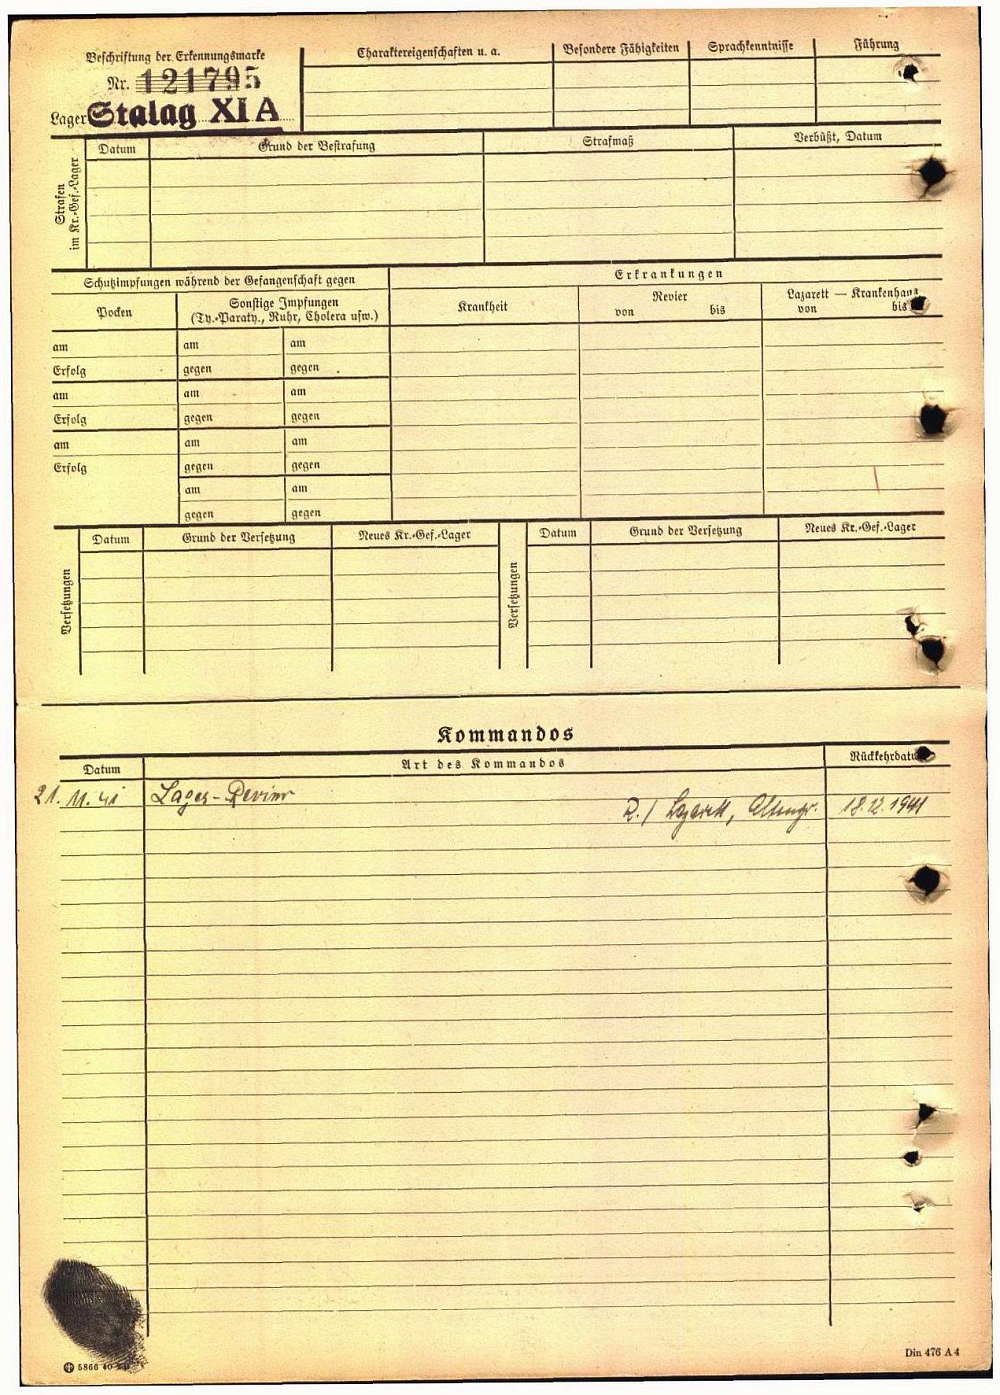 Beschriftung der Erkennungsmarke
Nr. 121795
Lager Stalag XI A
Charaktereigenschaften u. a.
Besondere Fähigkeiten
Sprachkenntnisse
Führung
Strafen im Kr.-Gef.-Lager
Datum
Grund der Bestrafung
Strafmaß
Verbüßt, Datum
Schutzimpfungen während der Gefangenschaft gegen
Pocken
Sonstige Impfungen
(Ty.-Paraty., Ruhr, Cholera usw.)
am am am
Erfolg gegen gegen
am am am
Erfolg gegen gegen
am am am
Erfolg gegen gegen
am am
gegen gegen
Erkrankungen
Krankheit
Revier
von bis
Lazarett — Krankenhaus
von bis
Versetzungen
Datum
Grund der Versetzung
Neues Kr.-Gef.-Lager
Versetzungen
Datum
Grund der Versetzung
Neues Kr.-Gef.-Lager
Kommandos
Datum
Art des Kommandos
21. 11. 41 Lager-Revier
Lazarett, 18.12.1941
5866 40
Din 476 A 4